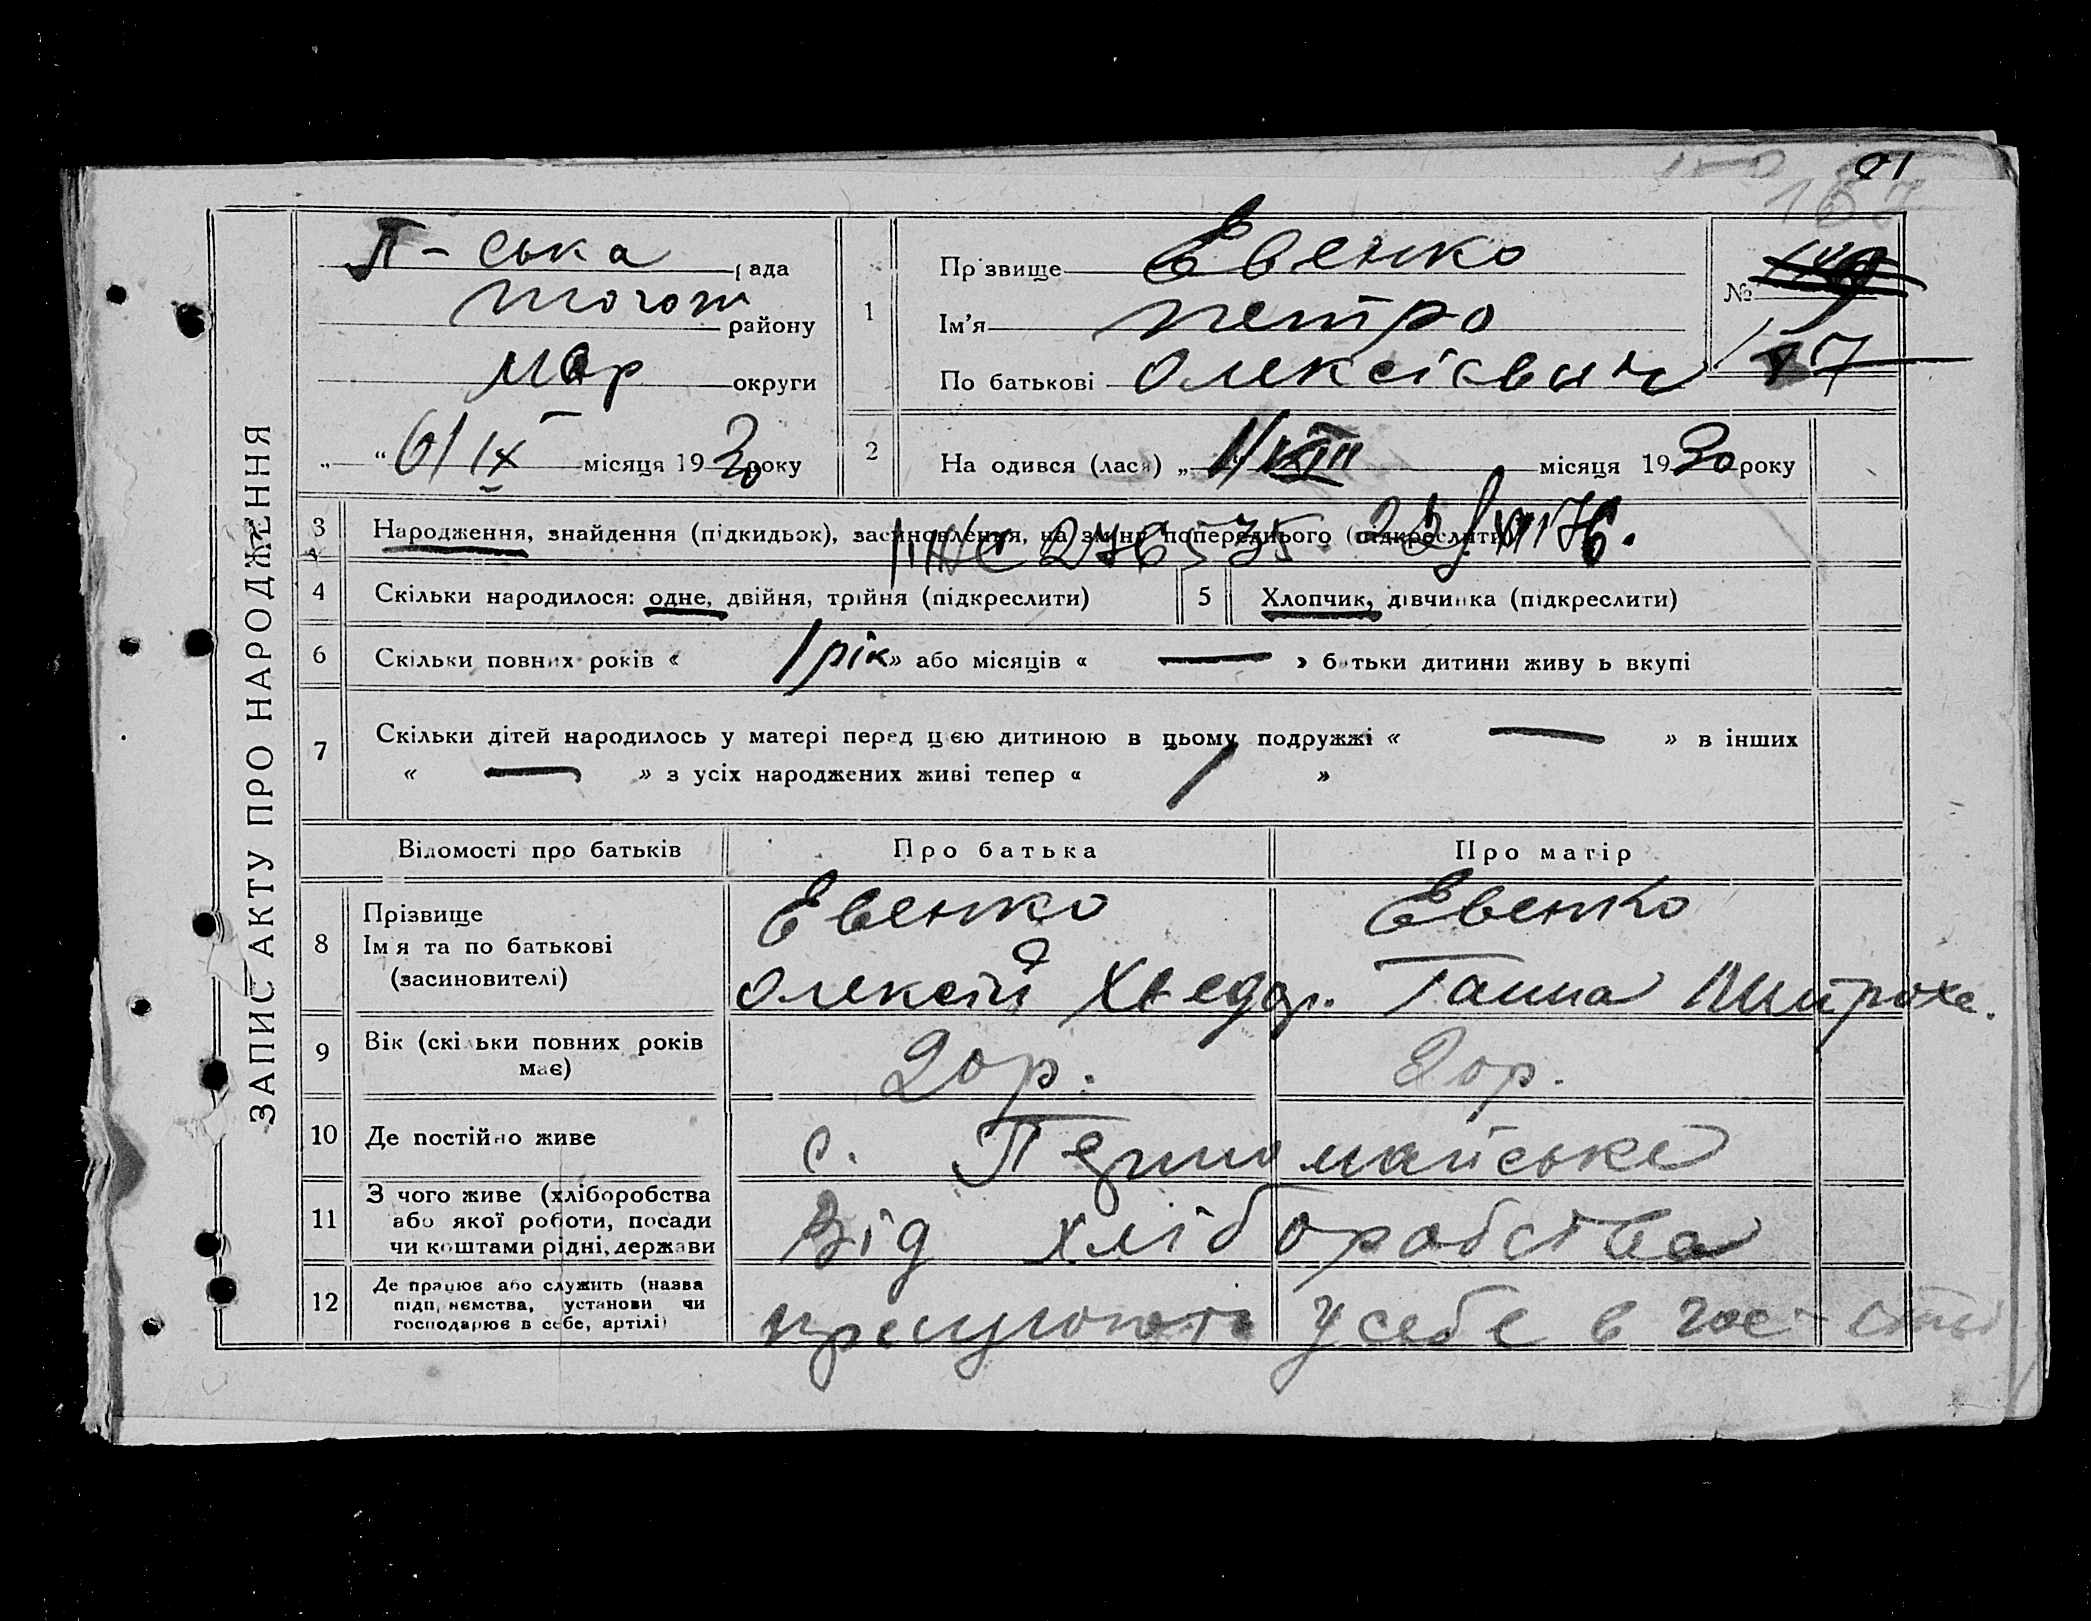 91
187
ЗАПИС АКТУ ПРО НАРОДЖЕННЯ
П-ська рада
району
Мар округи
„ “ 6/IX місяця 1930 року
1
Прізвище Евенко
Ім'я петро
По батькові Олексієвич
№ 149
187
2
На одився (лася) „ 1/VIII" місяця 1930 року
3 Народження, знайдення (підкидьок), засиновлення, на зміну попереднього (підкреслити)
II ЖС 276535. 22/XII 76.
4 Скільки народилося: одне, двійня, трійня (підкреслити) 5 Хлопчик, дівчинка (підкреслити)
6 Скільки повних років « 1 рік » або місяців « — » батьки дитини живуть вкупі
7 Скільки дітей народилось у матері перед цією дитиною в цьому подружжі « — » в інших
« — » з усіх народжених живі тепер « 1 »
Відомості про батьків Про батька Про матір
8 Прізвище
Ім я та по батькові
(засиновителі)
Евенко Евенко
Олексій Хведор. Ганна Митрохв.
9 Вік (скільки повних років
має)
20 р. 20 р.
10 Де постійно живе с. Первомайське
11 З чого живе (хліборобства
або якої роботи, посади
чи коштами рідні, держави
Від хліборобства
12 Де працює або служить (назва
підприємства, установи чи
господарює в себе, артілі)
працюють у себе в гос-стві